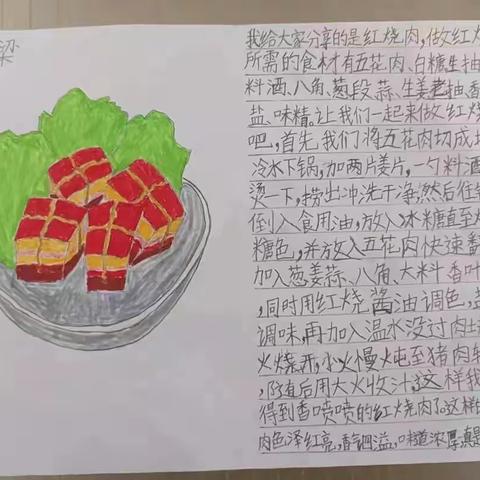 梁
我给大家分享的是红烧肉,做红烧
所需的食材有五花肉、白糖生抽
料酒、八角、葱段蒜、生姜老抽、香
盐、味精,让我们一起来做红烧
吧,首先我们将五花肉切成块
冷水下锅,加两片姜片,一勺料酒
烫一下,捞出冲洗干净,然后往锅
倒入食用油,放入冰糖直至炒
糖色,并放入五花肉快速翻
加入葱姜蒜、八角、大料香叶
,同时用红烧酱油调色,盐
调味,再加入温水没过肉
火烧开,小火慢火炖至猪肉
后用大火收汁,这样我
得到香喷喷的红烧肉了。这样
肉色泽红亮,香气四溢,味道浓厚,真是